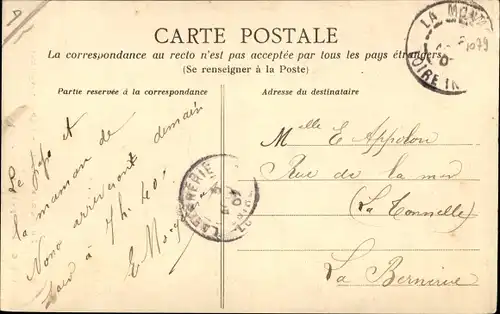 D
CARTE POSTALE
La correspondance au recto n'est pas acceptée par tous les pays étrangers
(Se renseigner à la Poste)
Partie reservée à la correspondance
Adresse du destinataire
LA MON
1079
Le Papa et
la maman de
Nono arriveront demain
soir à 7h. 40.
E.
Melle E Appolon
Rue de la mer
(La Tonnelle)
La Bernerie
LA BERNERIE